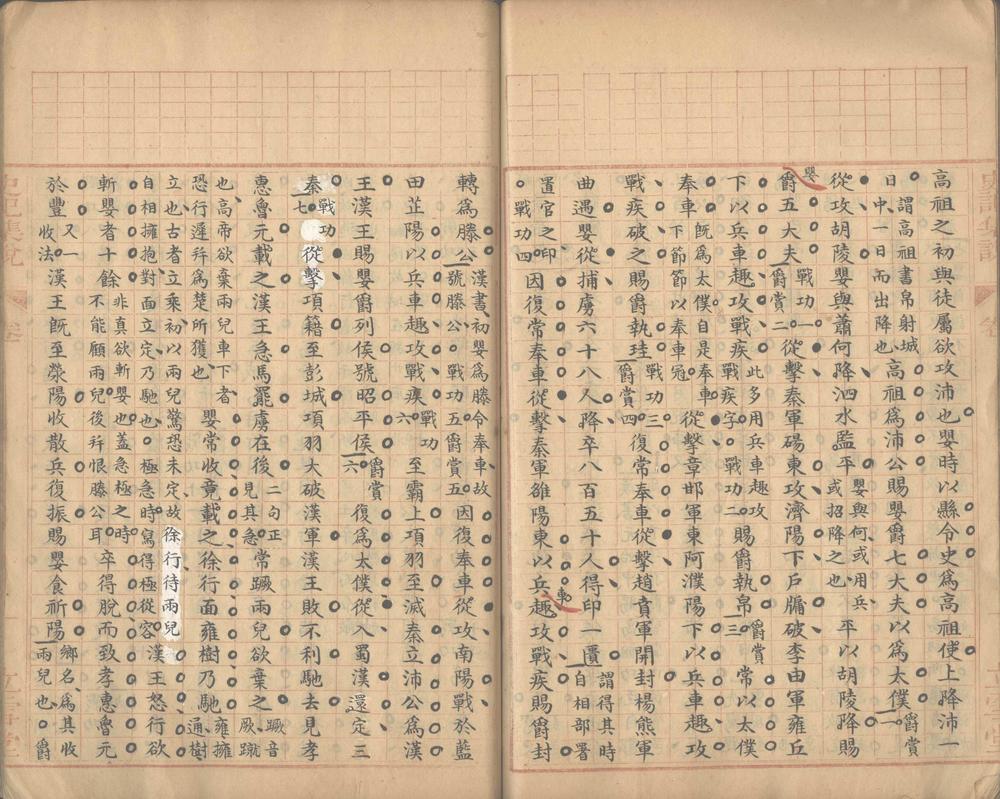 高祖之初與徒屬欲攻沛也嬰時以縣令史為高祖使上降沛一
日謂高祖書帛射城中一日而出降也高祖為沛公賜嬰爵七大夫以為太僕爵賞一
從攻胡陵嬰與蕭何降泗水監平嬰與何或用兵或招降之也平以胡陵降賜
嬰爵五大夫戰功一爵賞二從擊秦軍碭東攻濟陽下戶牖破李由軍雍丘
下以兵車趣攻戰疾此多用兵車趣攻戰疾字戰功二賜爵執帛爵賞三常以太僕
奉車既為太僕自是奉車下節節以奉車冠從擊章邯軍東阿濮陽下以兵車趣攻
戰疾破之賜爵執珪戰功三爵賞四復常奉車從擊趙賁軍開封楊熊軍
曲遇嬰從捕虜六十八人降卒八百五十人得印一匱謂得其時自相部署
置官之印戰功四因復常奉車從擊秦軍雒陽東以兵車趣攻戰疾賜爵封
轉為滕公漢書初嬰為滕令奉車故號滕公戰功五爵賞五因復奉車從攻南陽戰於藍
田芷陽以兵車趣攻戰疾戰功六至霸上項羽至滅秦立沛公為漢
王漢王賜嬰爵列侯號昭平侯爵賞六復為太僕從入蜀漢還定三
秦戰功七從擊項籍至彭城項羽大破漢軍漢王敗不利馳去見孝
惠魯元載之漢王急馬罷虜在後二句正見其急常蹶兩兒欲棄之蹶音厥蹴
也高帝欲棄兩兒車下者恐行遲幷為楚所獲也嬰常收竟載之徐行面雍樹乃馳雍擁通樹
立也古者立乘初以兩兒驚恐未定故徐行待兩兒
自相擁抱對面立定乃馳也極急時寫得極從容漢王怒行欲
斬嬰者十餘非真欲斬嬰也蓋急極之時不能顧兩兒後幷恨滕公耳卒得脫而致孝惠魯元
於豐又一收法漢王既至滎陽收散兵復振賜嬰食祈陽鄉名為其收兩兒也爵